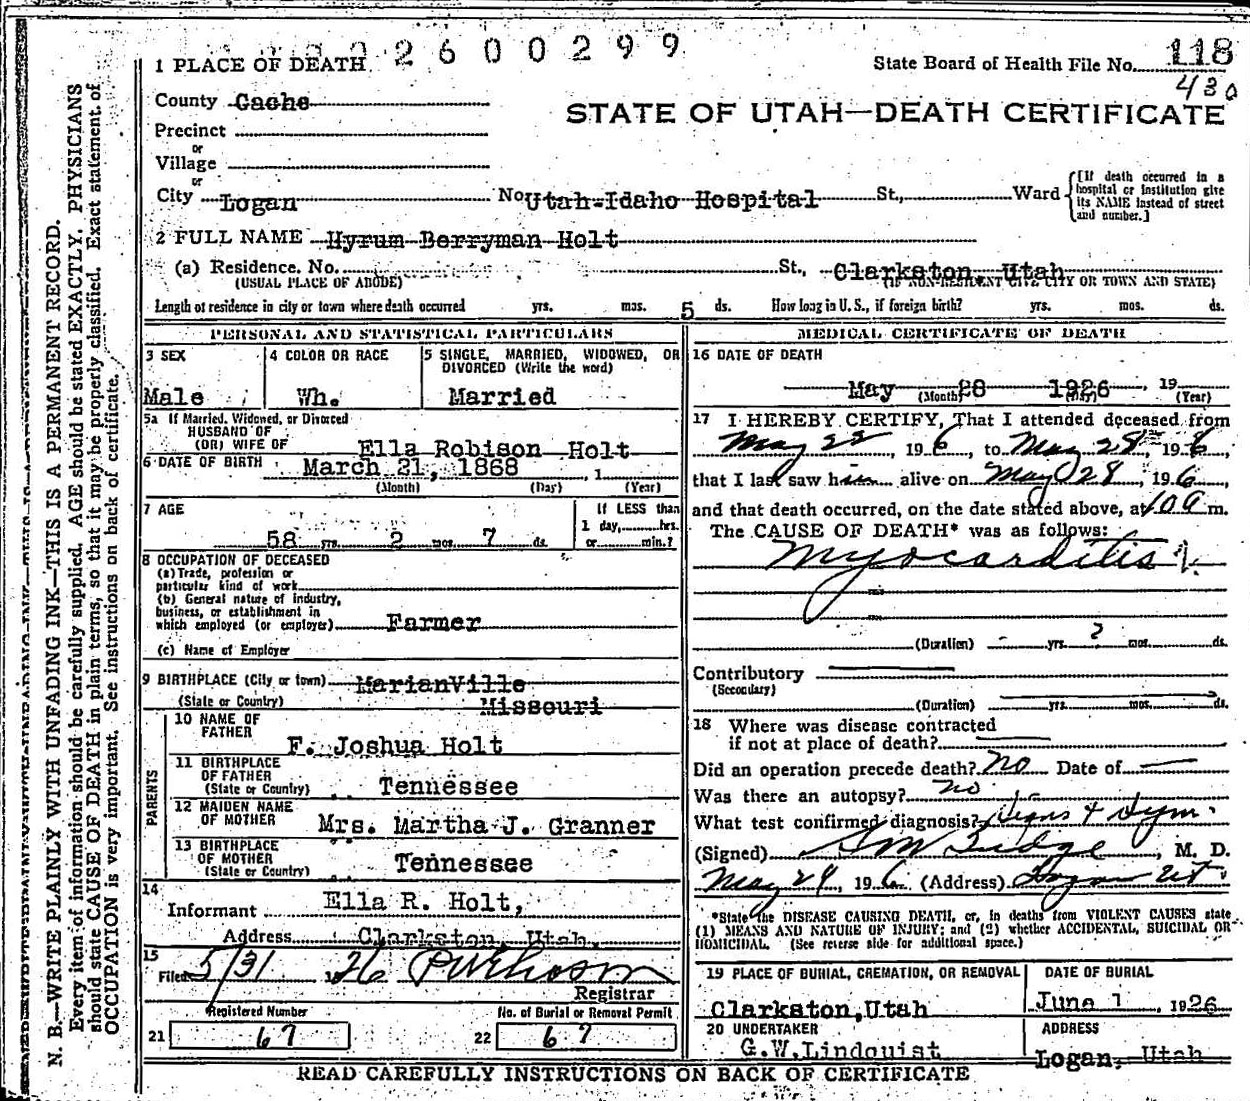 02600299
1 PLACE OF DEATH
State Board of Health File No. 118
430
County Cache
STATE OF UTAH—DEATH CERTIFICATE
Precinct
or
Village
or
City Logan No. Utah-Idaho Hospital St., Ward
[If death occurred in a hospital or institution give its NAME instead of street and number.]
2 FULL NAME Hyrum Berryman Holt
(a) Residence. No. St., Clarkston, Utah
(USUAL PLACE OF ABODE) (IF NON-RESIDENT GIVE CITY OR TOWN AND STATE)
Length of residence in city or town where death occurred yrs. mos. 5 ds. How long in U. S., if foreign birth? yrs. mos. ds.
PERSONAL AND STATISTICAL PARTICULARS
3 SEX
Male
4 COLOR OR RACE
Wh.
5 SINGLE, MARRIED, WIDOWED, OR
DIVORCED (Write the word)
Married
5a If Married, Widowed, or Divorced
HUSBAND OF
(OR) WIFE OF Ella Robison Holt
6 DATE OF BIRTH March 21, 1868 , 1
(Month) (Day) (Year)
7 AGE
58 yrs. 2 mos. 7 ds.
If LESS than
1 day, hrs.
or min.?
8 OCCUPATION OF DECEASED
(a) Trade, profession or
particular kind of work
(b) General nature of industry,
business, or establishment in
which employed (or employer) Farmer
(c) Name of Employer
9 BIRTHPLACE (City or town) MarianVille
(State or Country) Missouri
PARENTS
10 NAME OF
FATHER
F. Joshua Holt
11 BIRTHPLACE
OF FATHER
(State or Country) Tennessee
12 MAIDEN NAME
OF MOTHER Mrs. Martha J. Granner
13 BIRTHPLACE
OF MOTHER
(State or Country) Tennessee
14
Informant Ella R. Holt,
Address Clarkston, Utah.
15
Filed 5/31 1926
Registrar
Registered Number
21 67
No. of Burial or Removal Permit
22 67
MEDICAL CERTIFICATE OF DEATH
16 DATE OF DEATH
May 28 1926 , 19
(Month) (Day) (Year)
17 I HEREBY CERTIFY, That I attended deceased from
May 22, 1926, to May 28th, 1926,
that I last saw him alive on May 28, 1926,
and that death occurred, on the date stated above, at 10 a m.
The CAUSE OF DEATH* was as follows:
Myocarditis
(Duration) yrs. ? mos. ds.
Contributory
(Secondary)
(Duration) yrs. mos. ds.
18 Where was disease contracted
if not at place of death?
Did an operation precede death? No Date of
Was there an autopsy? no
What test confirmed diagnosis? Signs & Sym.
(Signed) , M. D.
May 29, 1926 (Address) Logan Ut
*State the DISEASE CAUSING DEATH, or, in deaths from VIOLENT CAUSES state
(1) MEANS AND NATURE OF INJURY; and (2) whether ACCIDENTAL, SUICIDAL OR
HOMICIDAL. (See reverse side for additional space.)
19 PLACE OF BURIAL, CREMATION, OR REMOVAL
Clarkston, Utah
DATE OF BURIAL
June 1, 1926
20 UNDERTAKER
G.W.Lindquist
ADDRESS
Logan, Utah
READ CAREFULLY INSTRUCTIONS ON BACK OF CERTIFICATE
N. B.—WRITE PLAINLY WITH UNFADING INK—THIS IS A PERMANENT RECORD.
Every item of information should be carefully supplied. AGE should be stated EXACTLY. PHYSICIANS
should state CAUSE OF DEATH in plain terms, so that it may be properly classified. Exact statement of
OCCUPATION is very important. See instructions on back of certificate.